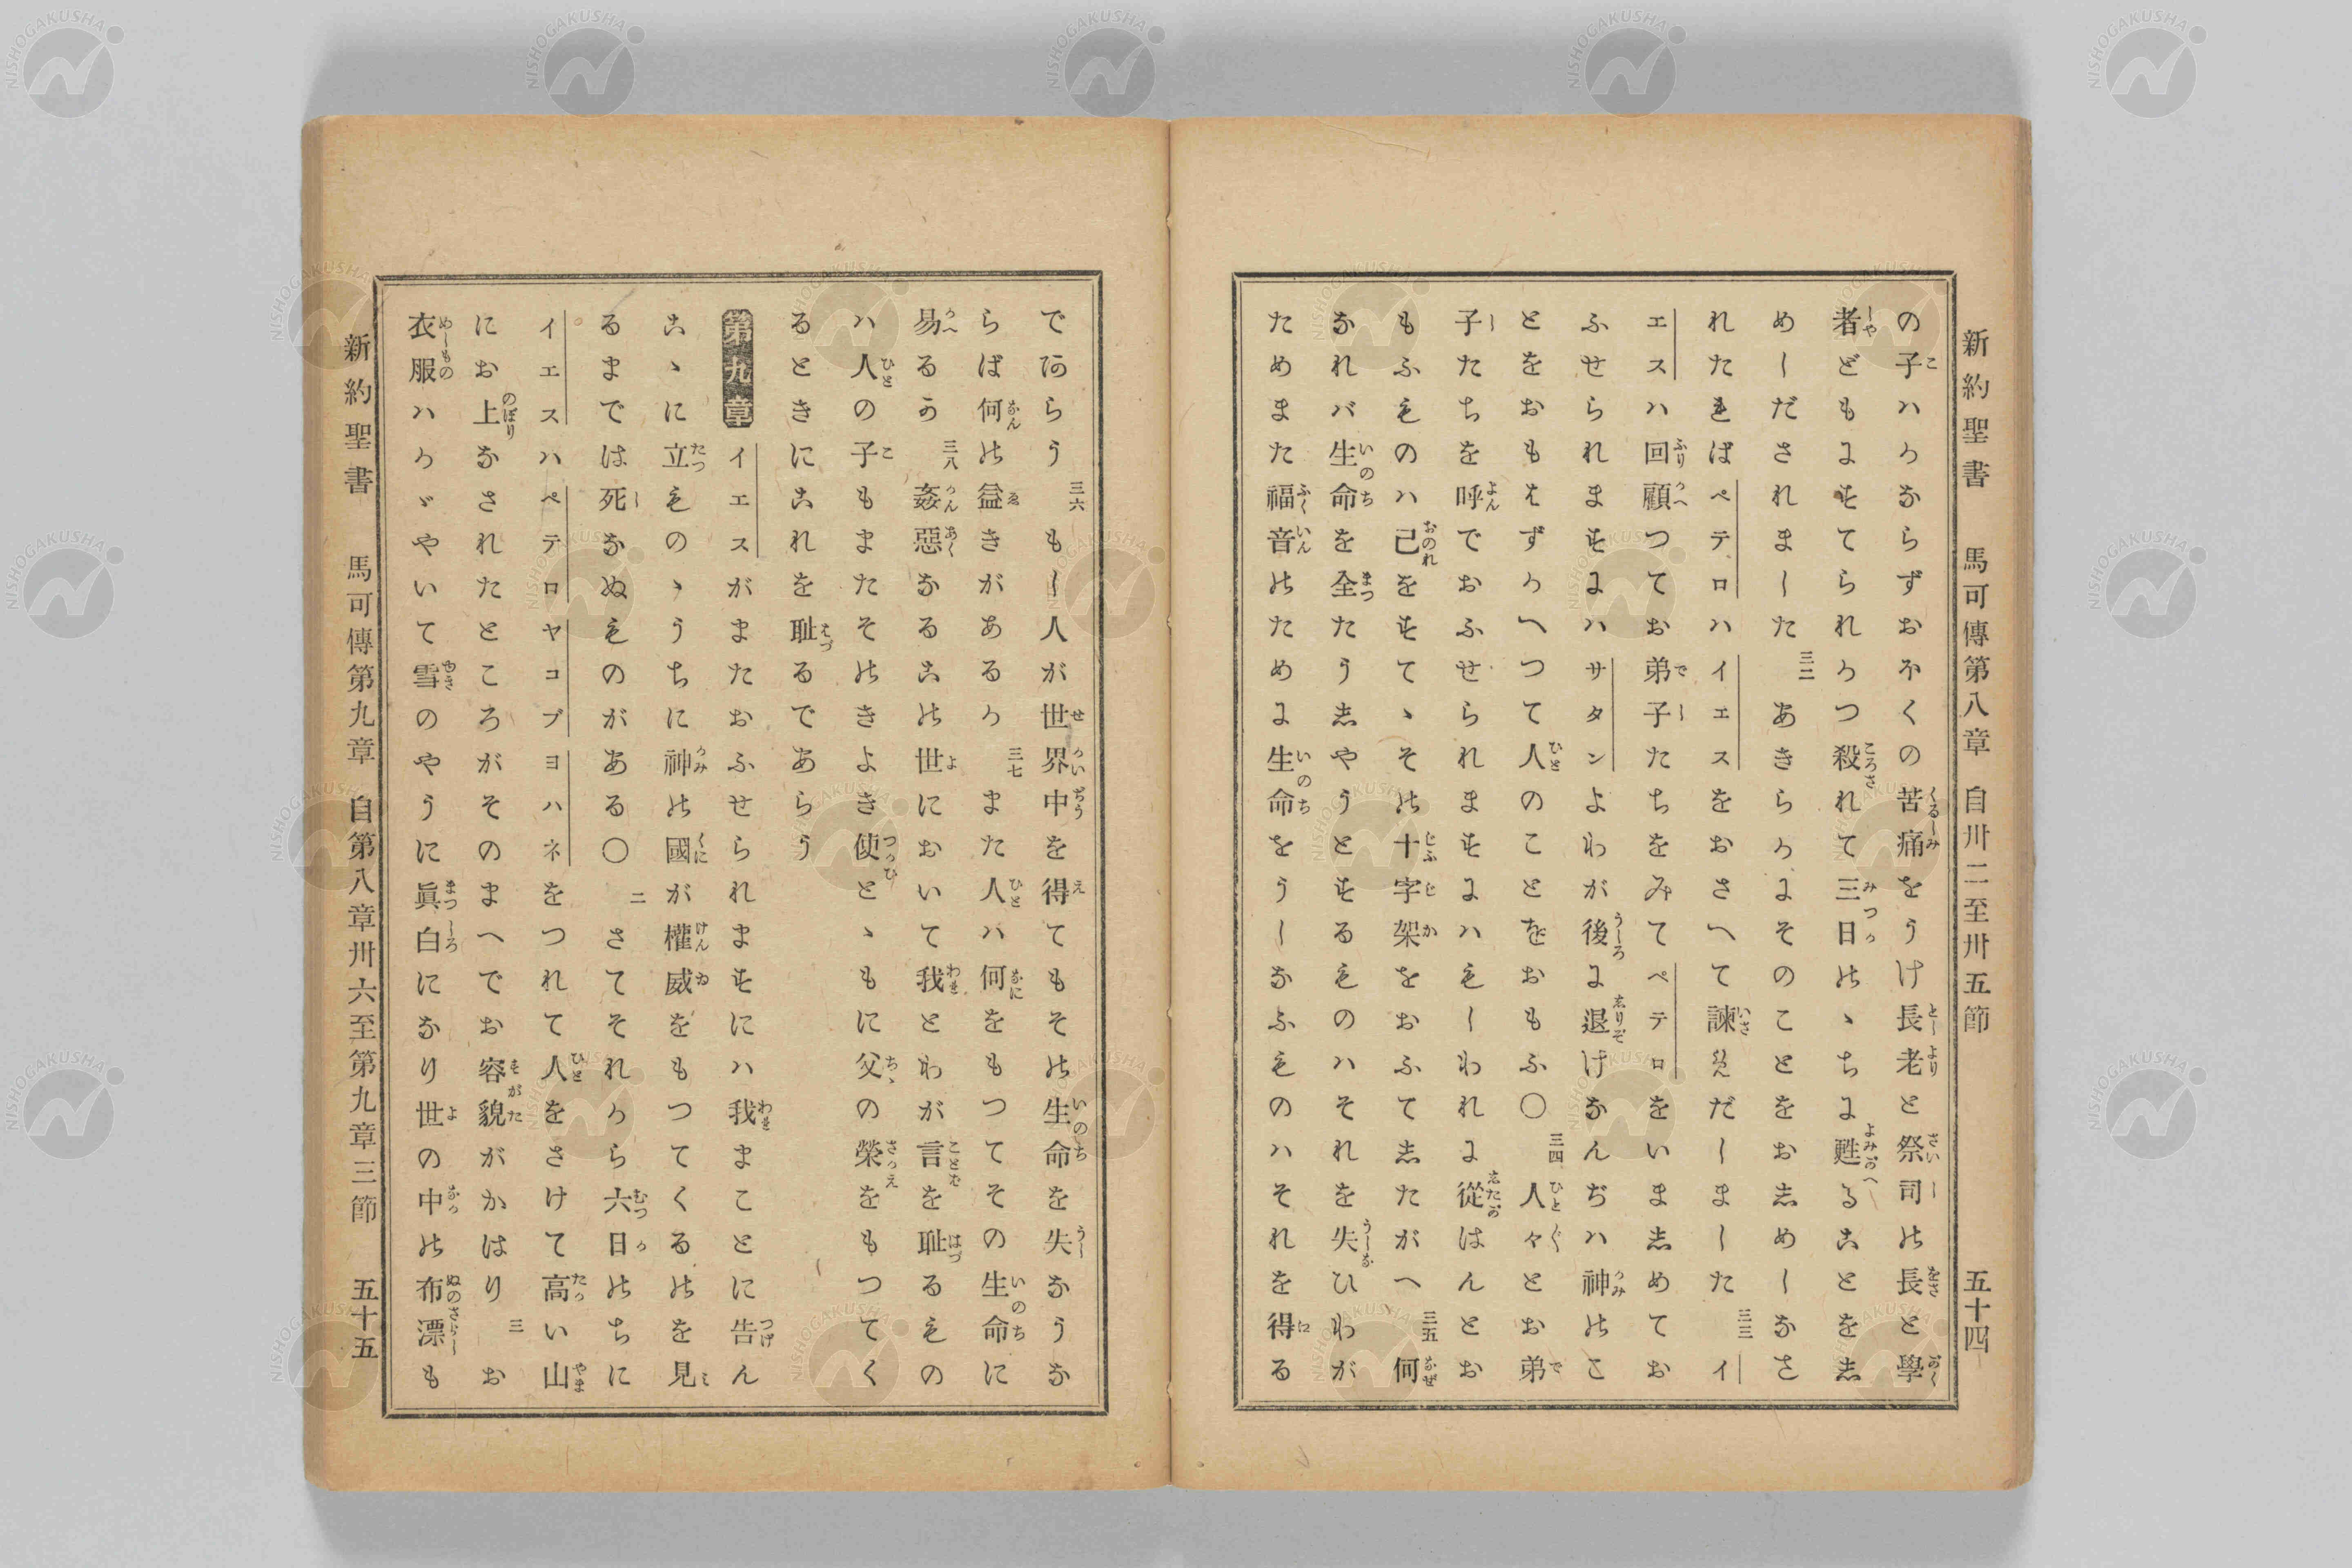 新約聖書 馬可傳第八章 自卅二至卅五節 五十四
の子ハかならずおほくの苦痛をうけ長老と祭司の長と學
者どもにすてられかつ殺されて三日のゝちに甦ることをし
めしだされました 三二 あきらかにそのことをおしめしなさ
れたればペテロハイエスをおさへて諫めだしました 三三 イ
エスハ回顧つてお弟子たちをみてペテロをいましめてお
ふせられますにハサタンよわが後に退けなんぢハ神のこ
とをおもはずかへつて人のことをおもふ〇 三四 人々とお弟
子たちを呼でおふせられますにハもしわれに從はんとお
もふものハ己をすてゝその十字架をおふてしたがへ 三五 何
なれバ生命を全たうしやうとするものハそれを失ひわが
ためまた福音のために生命をうしなふものハそれを得る
であらう 三六 もし人が世界中を得てもその生命を失なうな
らば何の益きがあるか 三七 また人ハ何をもつてその生命に
易るか 三八 姦惡なるこの世において我とわが言を耻るもの
ハ人の子もまたそのきよき使とゝもに父の榮をもつてく
るときにこれを耻るであらう
第九章 イエスがまたおふせられますにハ我まことに告ん
こゝに立ものゝうちに神の國が權威をもつてくるのを見
るまでは死なぬものがある〇 二 さてそれから六日のちに
イエスハペテロヤコブヨハネをつれて人をさけて高い山
にお上なされたところがそのまへでお容貌がかはり 三 お
衣服ハかゞやいて雪のやうに眞白になり世の中の布漂も
新約聖書 馬可傳第九章 自第八章卅六至第九章三節 五十五
NISHOGAKUSHA